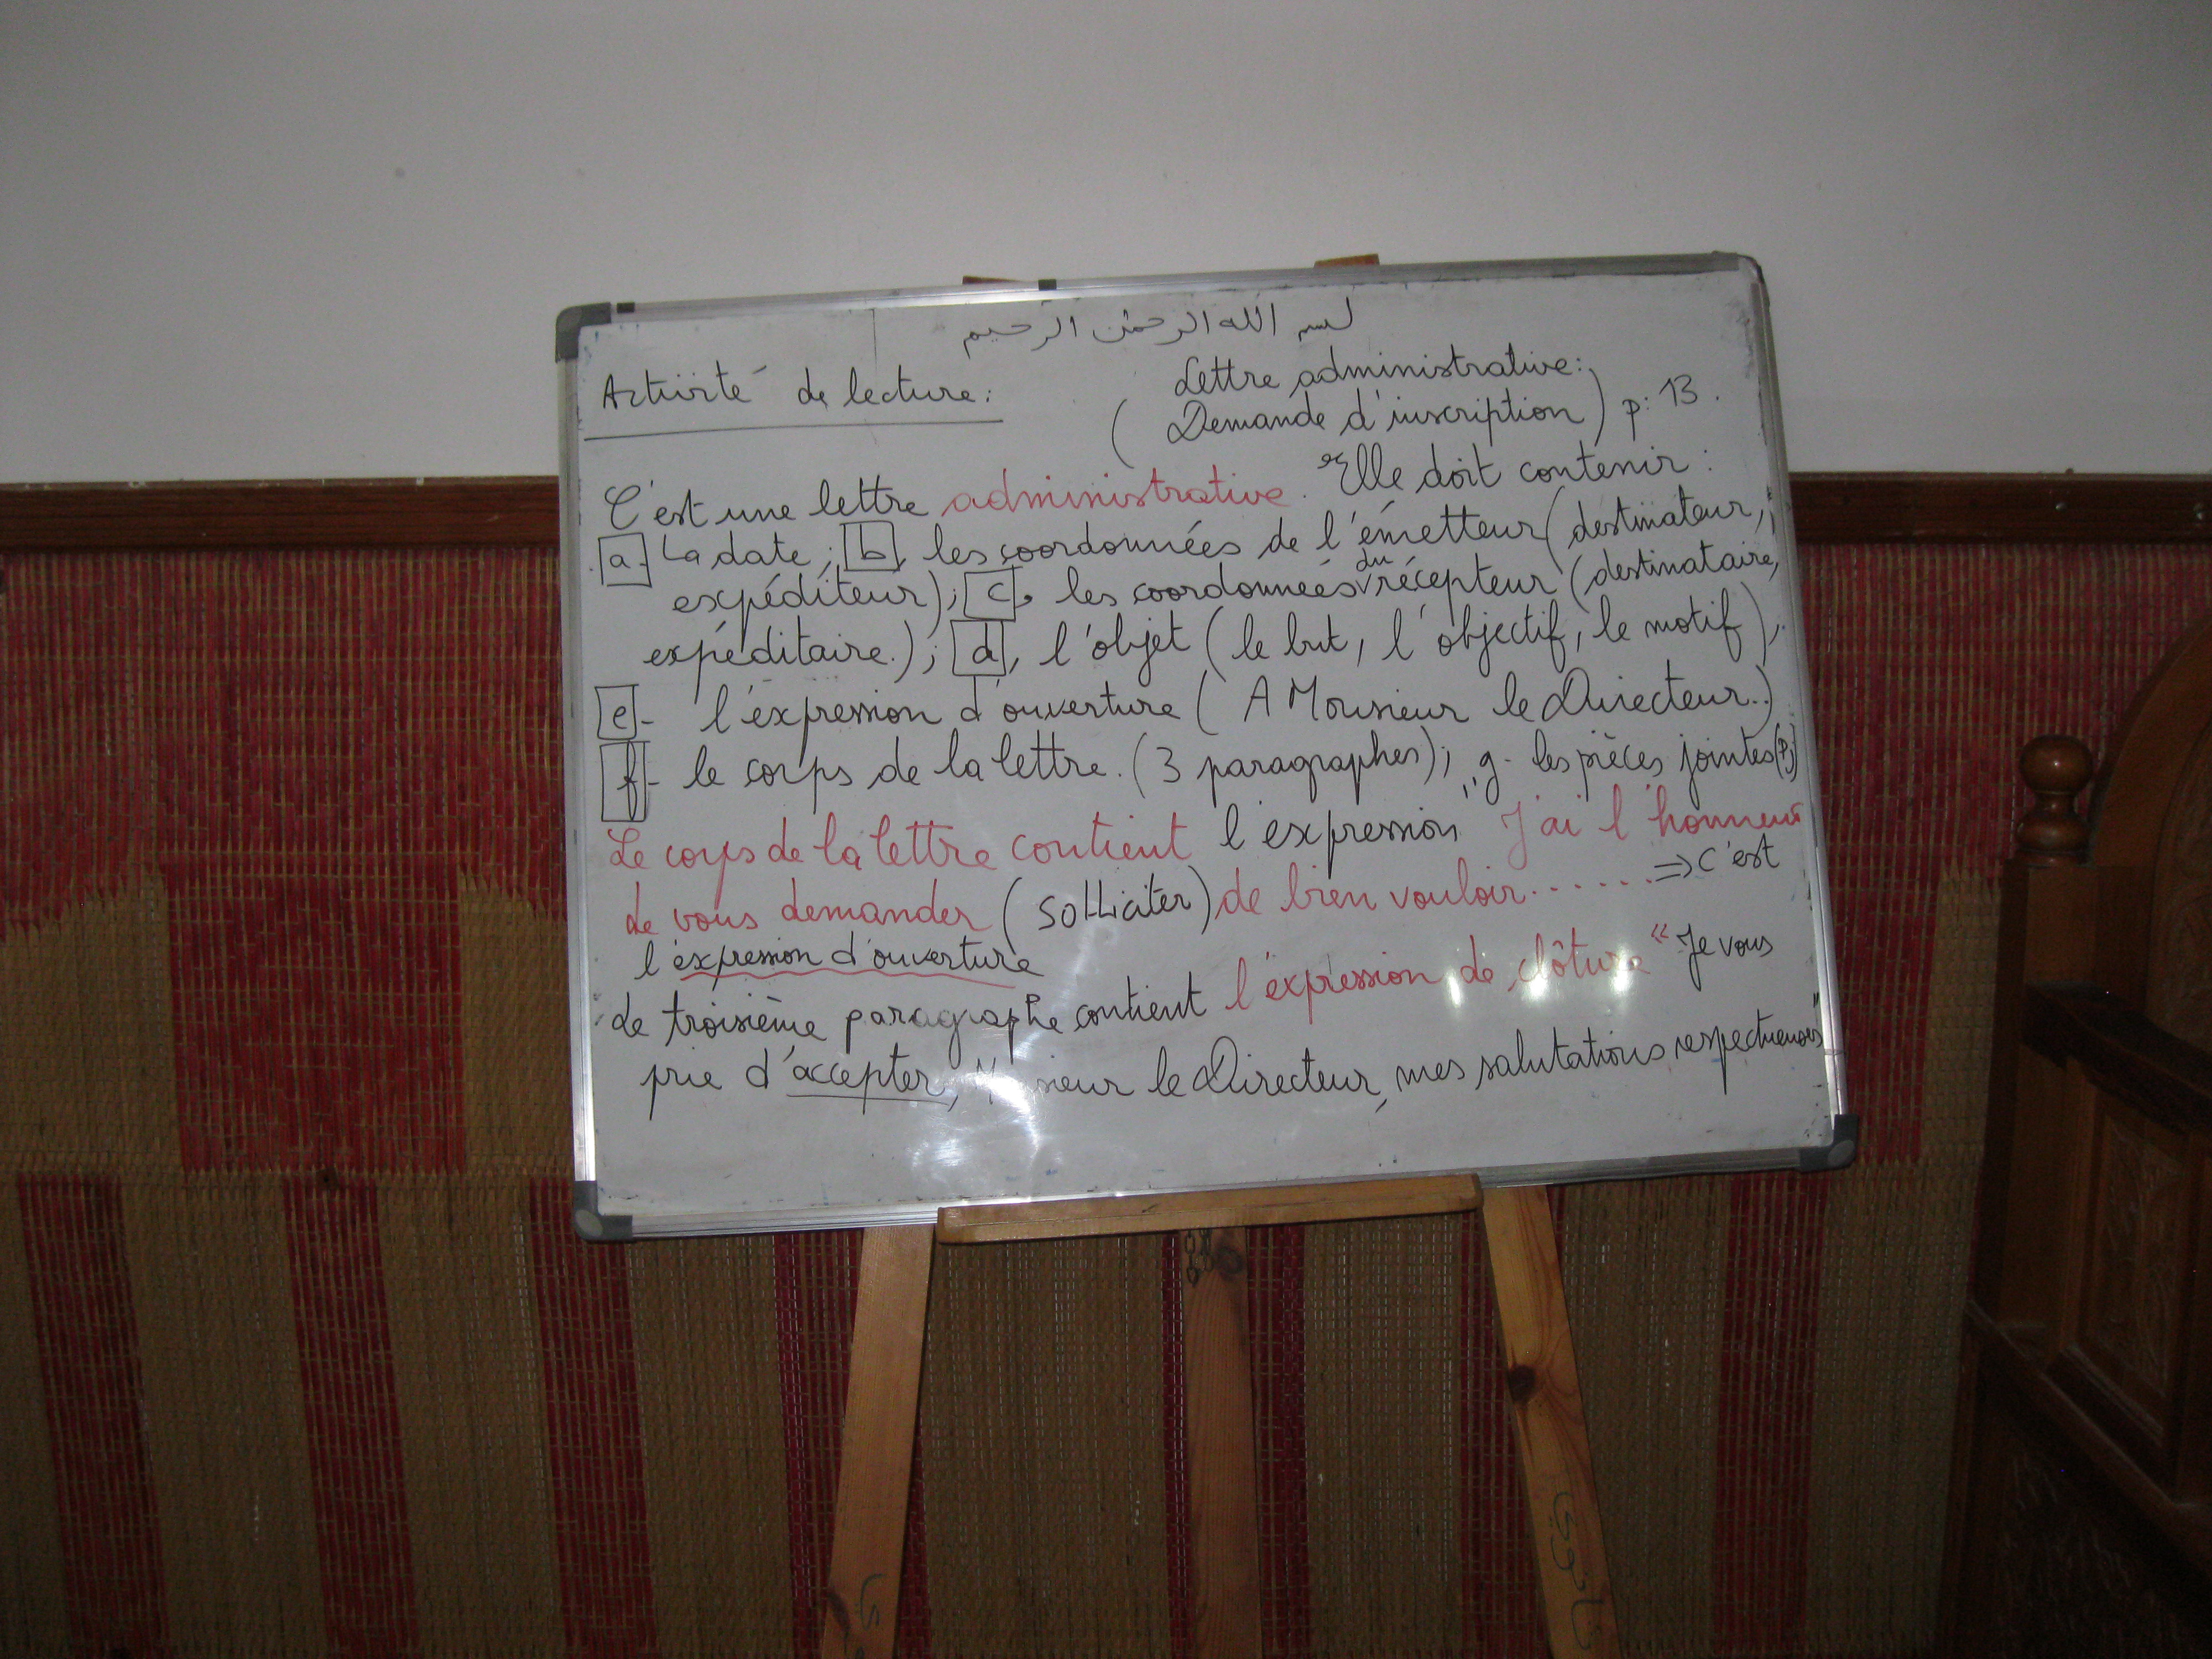 بسم الله الرحمن الرحيم
Activité de lecture :
Lettre administrative :
( Demande d'inscription ) p: 13.
C'est une lettre administrative. Elle doit contenir :
a. La date ; b. les coordonnées de l'émetteur (destinateur,
expéditeur) ; c. les coordonneés du récepteur (destinataire,
expéditaire.) ; d, l'objet (le but, l'objectif, le motif),
e - l'expression d'ouverture ( A Monsieur le Directeur..)
f - le corps de la lettre. (3 paragraphes) ; g - les pièces jointes (Pj)
Le corps de la lettre contient l'expression "J'ai l'honneur
de vous demander (solliciter) de bien vouloir....... => C'est
l'expression d'ouverture
Le troisième paragraphe contient l'expression de clôture " Je vous
prie d'accepter, Monsieur le Directeur, mes salutations respectueuses"